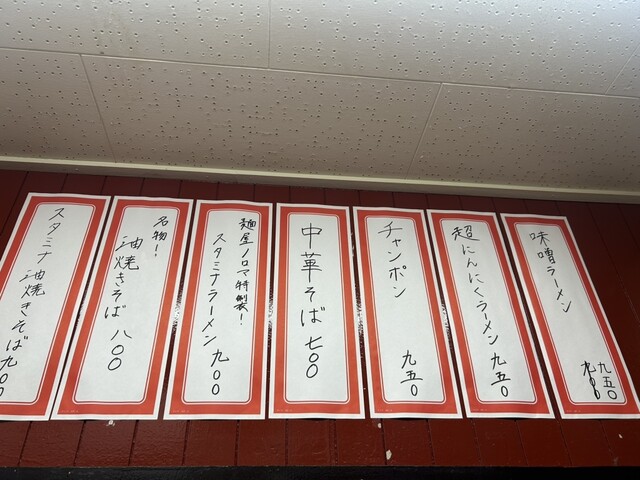 味噌ラーメン
九五〇
九〇〇
超にんにくラーメン 九五〇
チャンポン 九五〇
中華そば 七〇〇
麺屋ノロマ特製!
スタミナラーメン 九〇〇
名物!!
油焼きそば 八〇〇
スタミナ油焼きそば 九〇〇